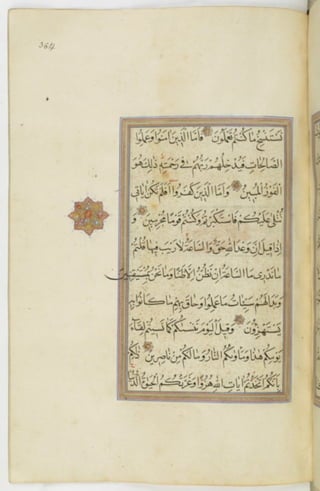 364
نستنسخ ما كنتم تعملون فاما الذين امنوا وعملوا
الصالحات فيدخلهم ربهم في رحمته ذلك هو
الفوز المبين واما الذين كفروا افلم تكن اياتي
تتلى عليكم فاستكبرتم وكنتم قوما مجرمين و
اذا قيل ان وعد الله حق والساعة لا ريب فيها قلتم
ما ندري ما الساعة ان نظن الا ظنا وما نحن بمستيقنين
وبدا لهم سيئات ما عملوا وحاق بهم ما كانوا به
يستهزؤن وقيل اليوم ننسيكم كما نسيتم لقاء
يومكم هذا وماويكم النار وما لكم من ناصرين ذلكم
بانكم اتخذتم ايات الله هزوا وغرتكم الحيوة الدنيا